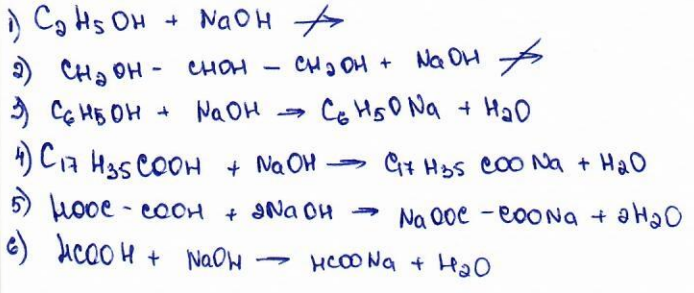 1) C₂H₅OH + NaOH ↛
2) CH₂OH - CHOH - CH₂OH + NaOH ↛
3) C₆H₅OH + NaOH → C₆H₅ONa + H₂O
4) C₁₇H₃₅COOH + NaOH → C₁₇H₃₅COONa + H₂O
5) HOOC - COOH + 2NaOH → NaOOC - COONa + 2H₂O
6) HCOOH + NaOH → HCOONa + H₂O